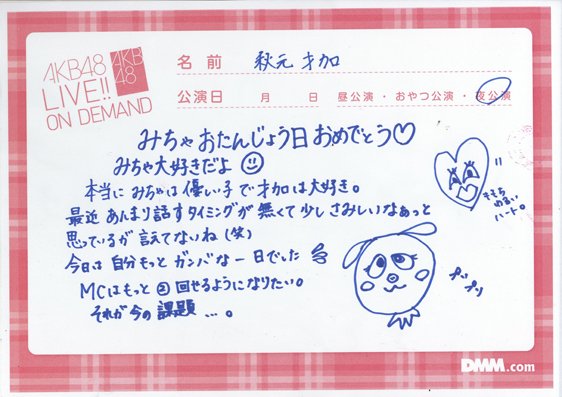 AKB48
LIVE!!
ON DEMAND
AKB
48
名前 秋元才加
公演日 月 日 昼公演・おやつ公演・夜公演
みちゃおたんじょう日おめでとう♡
みちゃ大好きだよ
本当にみちゃは優しい子で才加は大好き。
最近あんまり話すタイミングが無くて少しさみしいなぁっと
思っているが言えてないね(笑)
今日は自分もっとガンバな一日でした
MCはもっと回せるようになりたい。
それが今の課題…。
ハート。
プリプリ
DMM.com